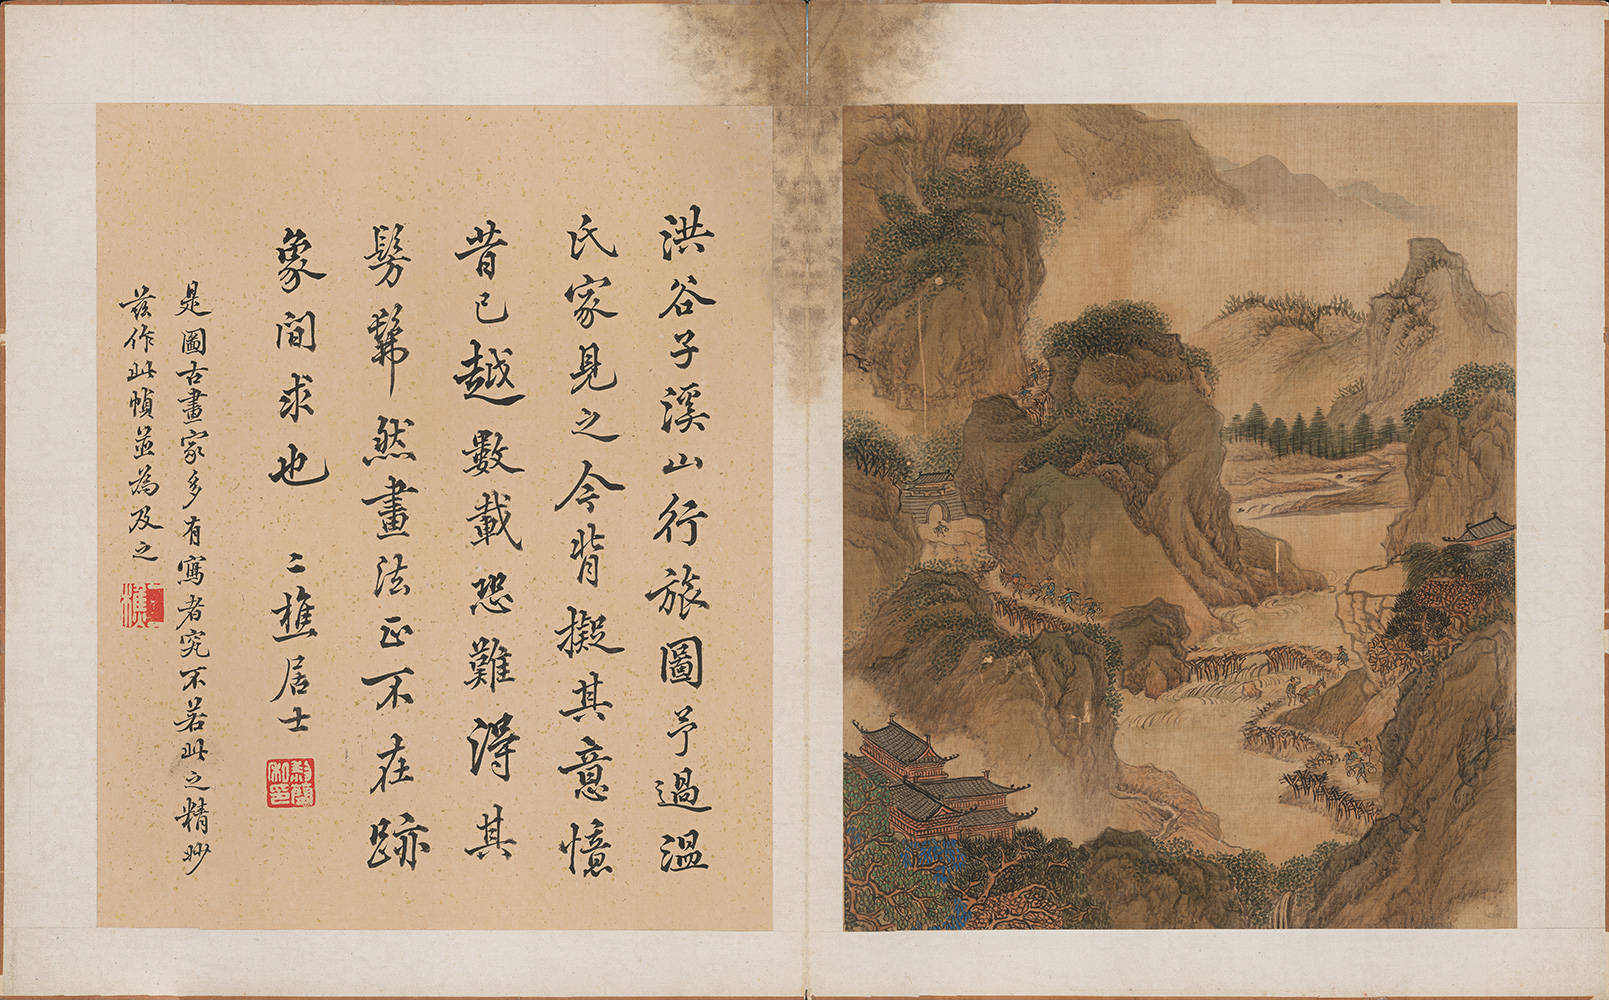 洪谷子溪山行旅圖予過溫
氏家見之今背擬其意憶
昔已越數載恐難得其
髣髴然畫法正不在跡
象間求也 二樵居士
是圖古畫家多有寫者究不若此之精妙
茲作此幀並為及之